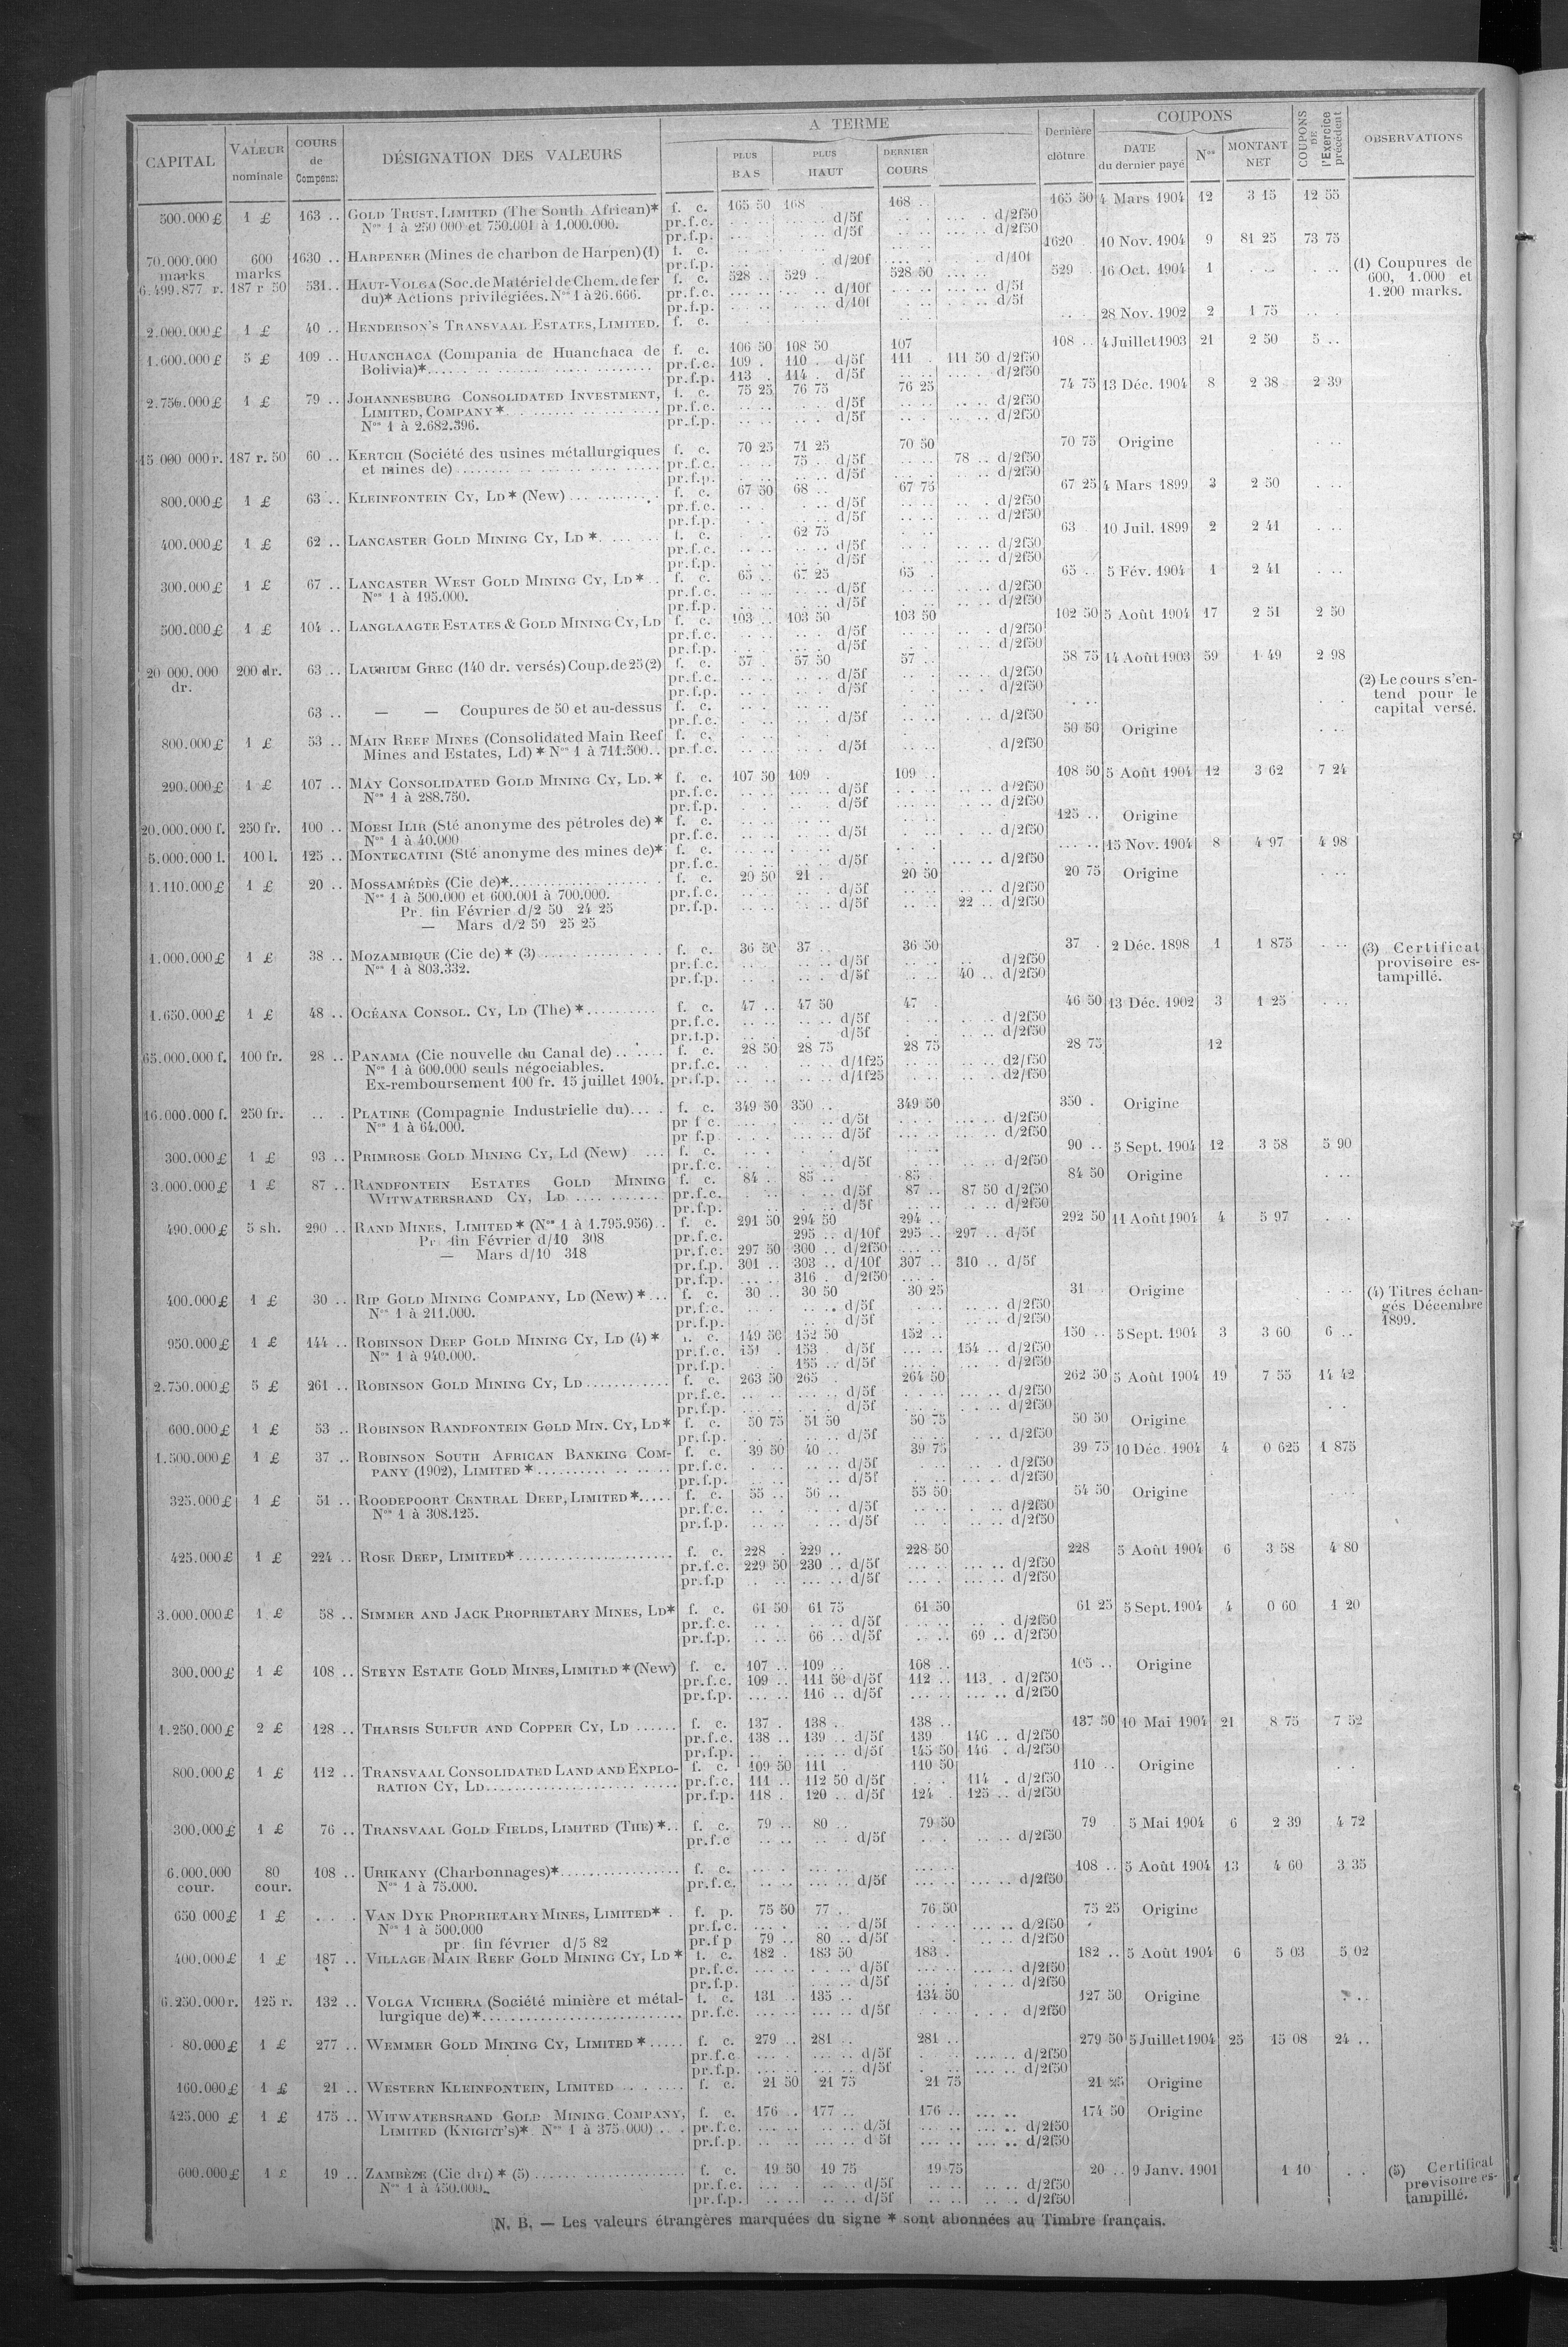 CAPITAL | VALEUR nominale | COURS de Compens: | DÉSIGNATION DES VALEURS | A TERME | PLUS BAS | PLUS HAUT | DERNIER COURS | Dernière clôture | COUPONS | DATE du dernier payé | Nos | MONTANT NET | COUPONS DE l'Exercice précédent | OBSERVATIONS
500.000 £ 1 £ 163 .. GOLD TRUST, LIMITED (The South African)* f. c. 165 50 168 . 168 .. 165 50 4 Mars 1904 12 3 15 12 55
Nos 1 à 250 000 et 750.001 à 1.000.000. pr.f.c. d/5f d/2f50
pr.f.p. d/5f d/2f50
70.000.000 marks 600 marks 1630 .. HARPENER (Mines de charbon de Harpen) (1) f. c. 1620 10 Nov. 1904 9 81 25 73 75
pr.f.p. d/20f d/10f
(1) Coupures de
600, 1.000 et
1.200 marks.
6.499.877 r. 187 r 50 531 .. HAUT-VOLGA (Soc. de Matériel de Chem. de fer f. c. 528 .. 529 .. 528 50 529 . 16 Oct. 1904 1
du)* Actions privilégiées. Nos 1 à 26.666. pr.f.c. d/10f d/5f
pr.f.p. d/10f d/5f
2.000.000 £ 1 £ 40 .. HENDERSON'S TRANSVAAL ESTATES, LIMITED. f. c. 28 Nov. 1902 2 1 75
1.600.000 £ 5 £ 109 .. HUANCHACA (Compania de Huanchaca de f. c. 106 50 108 50 107 108 .. 4 Juillet 1903 21 2 50 5 ..
Bolivia)* pr.f.c. 109 . 110 . d/5f 111 . 111 50 d/2f50
pr.f.p. 113 . 114 . d/5f d/2f50
2.750.000 £ 1 £ 79 .. JOHANNESBURG CONSOLIDATED INVESTMENT, f. c. 75 25 76 75 76 25 74 75 13 Déc. 1904 8 2 38 2 39
LIMITED, COMPANY * pr.f.c. d/5f d/2f50
Nos 1 à 2.682.396. pr.f.p. d/5f d/2f50
15 000 000 r. 187 r. 50 60 .. KERTCH (Société des usines métallurgiques f. c. 70 25 71 25 70 50 70 75 Origine
et mines de) pr.f.c. 75 . d/5f 78 .. d/2f50
pr.f.p. d/2f50
800.000 £ 1 £ 63 .. KLEINFONTEIN CY, LD * (New) f. c. 67 50 68 .. 67 75 67 25 4 Mars 1899 3 2 50
pr.f.c. d/5f d/2f50
pr.f.p. d/5f d/2f50
400.000 £ 1 £ 62 .. LANCASTER GOLD MINING CY, LD * f. c. 62 75 63 10 Juil. 1899 2 2 41
pr.f.c. d/5f d/2f50
pr.f.p. d/5f d/2f50
300.000 £ 1 £ 67 .. LANCASTER WEST GOLD MINING CY, LD * f. c. 65 .. 67 25 65 . 65 .. 5 Fév. 1904 1 2 41
Nos 1 à 195.000. pr.f.c. d/5f d/2f50
pr.f.p. d/5f d/2f50
500.000 £ 1 £ 104 .. LANGLAAGTE ESTATES & GOLD MINING CY, LD f. c. 103 .. 103 50 103 50 102 50 5 Août 1904 17 2 51 2 50
pr.f.c. d/5f d/2f50
pr.f.p. d/5f d/2f50
20 000.000 dr. 200 dr. 63 .. LAURIUM GREC (140 dr. versés) Coup. de 25 (2) f. c. 57 . 57 50 57 .. 58 75 14 Août 1903 59 1 49 2 98
pr.f.c. d/5f d/2f50
pr.f.p. d/5f d/2f50
(2) Le cours s'en-
tend pour le
capital versé.
63 .. — — Coupures de 50 et au-dessus f. c.
pr.f.c. d/5f d/2f50
800.000 £ 1 £ 53 .. MAIN REEF MINES (Consolidated Main Reef f. c. 50 50 Origine
Mines and Estates, Ld) * Nos 1 à 711.500 .. pr.f.c. d/5f d/2f50
290.000 £ 1 £ 107 .. MAY CONSOLIDATED GOLD MINING CY, LD. * f. c. 107 50 109 . 109 .. 108 50 5 Août 1904 12 3 62 7 24
Nos 1 à 288.750. pr.f.c. d/5f d/2f50
pr.f.p. d/5f d/2f50
20.000.000 f. 250 fr. 100 .. MOESI ILIR (Sté anonyme des pétroles de) * f. c. 125 .. Origine
Nos 1 à 40.000 pr.f.c. d/5f d/2f50
5.000.000 l. 100 l. 125 .. MONTECATINI (Sté anonyme des mines de)* f. c. 15 Nov. 1904 8 4 97 4 98
pr.f.c. d/5f d/2f50
1.110.000 £ 1 £ 20 .. MOSSAMÉDÈS (Cie de)* f. c. 20 50 21 . 20 50 20 75 Origine
Nos 1 à 500.000 et 600.001 à 700.000. pr.f.c. d/5f d/2f50
Pr. fin Février d/2 50 24 25 pr.f.p. d/5f 22 .. d/2f50
— Mars d/2 50 25 25
1.000.000 £ 1 £ 38 .. MOZAMBIQUE (Cie de) * (3) f. c. 36 50 37 .. 36 50 37 . 2 Déc. 1898 1 1 875
Nos 1 à 803.332. pr.f.c. d/5f d/2f50
pr.f.p. d/5f 40 .. d/2f50
(3) Certificat
provisoire es-
tampillé.
1.650.000 £ 1 £ 48 .. OCÉANA CONSOL. CY, LD (The) * f. c. 47 .. 47 50 47 . 46 50 13 Déc. 1902 3 1 25
pr.f.c. d/5f d/2f50
pr.f.p. d/5f d/2f50
65.000.000 f. 100 fr. 28 .. PANAMA (Cie nouvelle du Canal de) f. c. 28 50 28 75 28 75 28 75 12
Nos 1 à 600.000 seuls négociables. pr.f.c. d/1f25 d2/f50
Ex-remboursement 100 fr. 15 juillet 1904. pr.f.p. d/1f25 d2/f50
16.000.000 f. 250 fr. PLATINE (Compagnie Industrielle du) f. c. 349 50 350 .. 349 50 350 . Origine
Nos 1 à 64.000. pr f c. d/5f d/2f50
pr f.p d/5f d/2f50
300.000 £ 1 £ 93 .. PRIMROSE GOLD MINING CY, Ld (New) f. c. 90 .. 5 Sept. 1904 12 3 58 5 90
pr.f.c. d/5f d/2f50
3.000.000 £ 1 £ 87 .. RANDFONTEIN ESTATES GOLD MINING f. c. 84 . 85 .. 85 . 84 50 Origine
WITWATERSRAND CY, LD pr.f.c. d/5f 87 .. 87 50 d/2f50
pr.f.p. d/5f d/2f50
490.000 £ 5 sh. 290 .. RAND MINES, LIMITED * (Nos 1 à 1.795.956) .. f. c. 291 50 294 50 294 .. 292 50 11 Août 1904 4 5 97
Pr fin Février d/10 308 pr.f.c. 295 .. d/10f 295 .. 297 .. d/5f
— Mars d/10 318 pr.f.c. 297 50 300 .. d/2f50
pr.f.p. 301 .. 303 .. d/10f 307 .. 310 .. d/5f
pr.f.p. 316 . d/2f50
400.000 £ 1 £ 30 .. RIP GOLD MINING COMPANY, LD (New) * f. c. 30 .. 30 50 30 25 31 Origine
Nos 1 à 211.000. pr.f.c. d/5f d/2f50
pr.f.p. d/5f d/2f50
(4) Titres échan-
gés Décembre
1899.
950.000 £ 1 £ 144 .. ROBINSON DEEP GOLD MINING CY, LD (4) * f. c. 149 50 152 50 152 .. 150 .. 5 Sept. 1904 3 3 60 6 ..
Nos 1 à 940.000. pr.f.c. 151 . 153 . d/5f 154 .. d/2f50
pr.f.p. 155 .. d/5f d/2f50
2.750.000 £ 5 £ 261 .. ROBINSON GOLD MINING CY, LD f. c. 263 50 265 . 264 50 262 50 5 Août 1904 19 7 55 14 42
pr.f.c. d/5f d/2f50
pr.f.p. d/5f d/2f50
600.000 £ 1 £ 53 .. ROBINSON RANDFONTEIN GOLD MIN. CY, LD* f. c. 50 75 51 50 50 75 50 50 Origine
pr.f.p. d/5f d/2f50
1.500.000 £ 1 £ 37 .. ROBINSON SOUTH AFRICAN BANKING COM- f. c. 39 50 40 .. 39 75 39 75 10 Déc. 1904 4 0 625 1 875
PANY (1902), LIMITED * pr.f.c. d/5f d/2f50
pr.f.p. d/5f d/2f50
325.000 £ 1 £ 51 .. ROODEPOORT CENTRAL DEEP, LIMITED * f. c. 55 .. 56 .. 55 50 54 50 Origine
Nos 1 à 308.125. pr.f.c. d/5f d/2f50
pr.f.p. d/5f d/2f50
425.000 £ 1 £ 224 .. ROSE DEEP, LIMITED* f. c. 228 . 229 .. 228 50 228 5 Août 1904 6 3 58 4 80
pr.f.c. 229 50 230 .. d/5f d/2f50
pr.f.p d/5f d/2f50
3.000.000 £ 1 £ 58 .. SIMMER AND JACK PROPRIETARY MINES, LD* f. c. 61 50 61 75 61 50 61 25 5 Sept. 1904 4 0 60 1 20
pr.f.c. d/5f d/2f50
pr.f.p. 66 .. d/5f 69 .. d/2f50
300.000 £ 1 £ 108 .. STEYN ESTATE GOLD MINES, LIMITED * (New) f. c. 107 .. 109 .. 108 .. 105 .. Origine
pr.f.c. 109 .. 111 50 d/5f 112 .. 113 . d/2f50
pr.f.p. 116 .. d/5f d/2f50
1.250.000 £ 2 £ 128 .. THARSIS SULFUR AND COPPER CY, LD f. c. 137 . 138 . 138 .. 137 50 10 Mai 1904 21 8 75 7 52
pr.f.c. 138 .. 139 .. d/5f 139 140 .. d/2f50
pr.f.p. d/5f 145 50 146 . d/2f50
800.000 £ 1 £ 112 .. TRANSVAAL CONSOLIDATED LAND AND EXPLO- f. c. 109 50 111 . 110 50 110 .. Origine
RATION CY, LD pr.f.c. 111 .. 112 50 d/5f 114 . d/2f50
pr.f.p. 118 . 120 .. d/5f 124 . 125 .. d/2f50
300.000 £ 1 £ 76 .. TRANSVAAL GOLD FIELDS, LIMITED (THE) * .. f. c. 79 .. 80 .. 79 50 79 5 Mai 1904 6 2 39 4 72
pr.f.c d/5f d/2f50
6.000.000 cour. 80 cour. 108 .. URIKANY (Charbonnages)* f. c. 108 .. 5 Août 1904 13 4 60 3 35
Nos 1 à 75.000. pr.f.c. d/5f d/2f50
650 000 £ 1 £ VAN DYK PROPRIETARY MINES, LIMITED* . f. p. 75 50 77 .. 76 50 75 25 Origine
Nos 1 à 500.000 pr.f.c. d/5f d/2f50
pr. fin février d/5 82 pr.f p 79 .. 80 .. d/5f d/2f50
400.000 £ 1 £ 187 .. VILLAGE MAIN REEF GOLD MINING CY, LD * f. c. 182 . 183 50 183 . 182 .. 5 Août 1904 6 5 03 5 02
pr.f.c. d/5f d/2f50
pr.f.p. d/5f d/2f50
6.250.000 r. 125 r. 132 .. VOLGA VICHERA (Société minière et métal- f. c. 131 . 135 .. 134 50 127 50 Origine
lurgique de) * pr.f.c. d/5f d/2f50
80.000 £ 1 £ 277 .. WEMMER GOLD MINING CY, LIMITED * f. c. 279 .. 281 .. 281 .. 279 50 5 Juillet 1904 25 15 08 24 ..
pr.f.c d/5f d/2f50
pr.f.p. d/5f d/2f50
160.000 £ 1 £ 21 .. WESTERN KLEINFONTEIN, LIMITED f. c. 21 50 21 75 21 75 21 25 Origine
425.000 £ 1 £ 175 .. WITWATERSRAND GOLD MINING COMPANY, f. c. 176 . 177 .. 176 .. 174 50 Origine
LIMITED (KNIGHT'S)* Nos 1 à 375.000) pr.f.c. d/5f d/2f50
pr.f.p. d 5f d/2f50
600.000 £ 1 £ 19 .. ZAMBÈZE (Cie du) * (5) f. c. 19 50 19 75 19 75 20 .. 9 Janv. 1901 1 10
Nos 1 à 450.000. pr.f.c. d/5f d/2f50
pr.f.p. d/5f d/2f50
(5) Certificat
provisoire es-
tampillé.
N. B. — Les valeurs étrangères marquées du signe * sont abonnées au Timbre français.